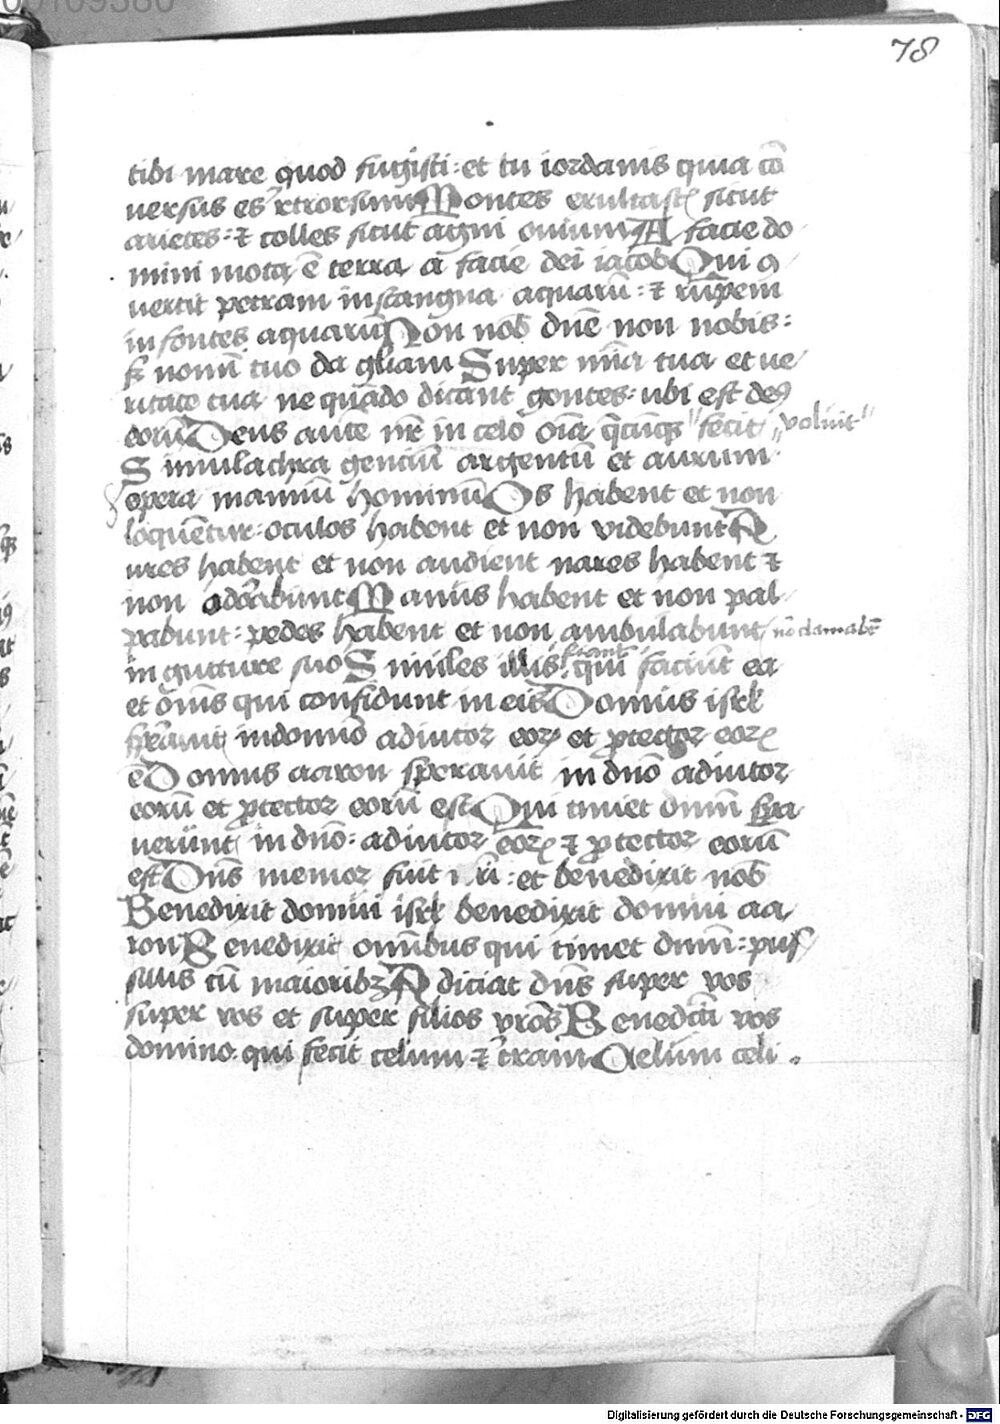 00109380
78
tibi mare quod fugisti: et tu iordanis quia cō
uersus es rtrorsum Montes exultast͛ sicut
arietes: ⁊ colles sicut agni ouium A facie do
mini mota ē terra a facie dei iacob Qui ꝯ
uertit petram in stangna aquarū: ⁊ rūpem
in fontes aquarū Non nob̄ dn̄e non nobis:
sꝫ nomī tuo da gl̄iam Super mīa tua et ue
ritate tua ne quādo dicant gentes: ubi est deꝰ
eorū Deus aute nr̄ in celo oīa q̄cūqꝫ "fecit "uoluit"
Simulachra genciū argentū et aurum
opera manuū hominū Os habent et non
loquētur: oculos habent et non videbunt A
ures habent et non audient nares habent ⁊
non odorabunt Manus habent et non pal
pabunt: pedes habent et non ambulabunt nō clamabt̄
in gutture suo Similes illis fiant qui faciūt ea
et om̄s qui confidunt in eis Domus isrl̄
sperauit in domīo adiutor eorꝫ et ꝓtector eorꝫ
ē Domus aaron sperauit in dn̄o adiutor
eorū et ꝓtector eorū est Qui timēt dn̄m spa
uerunt in dn̄o: adiutor eorꝫ ⁊ ꝓtector eorū
est Dn̄s memor fuit nr̄i: et benedixit nob̄
Benedixit domui isrl̄ benedixit domui aa
ron Benedixit omībus qui timēt dn̄m: pus
sillis cū maioribꝫ Adiciat dn̄s super vos
super vos et super filios vr̄os Benedc̄ti vos
domino qui fecit celum ⁊ t̄ram Celum celi.
Digitalisierung gefördert durch die Deutsche Forschungsgemeinschaft - DFG